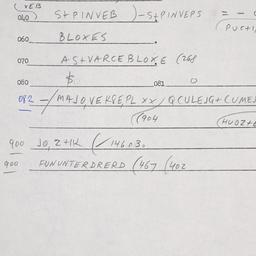 (VEB
040) S+PINVEB )-S+PINVEPS = - (
(PUC+1
060 BLOXES.
070 AS+VARCEBLOXE (268
080 $. 081 O
082 -/MAJO,VEKQE,PL XX/QCULEJG+CUMEJ
(1904 (HUOZ+
900 JO, 2+1K (/146030
900 FUNUNTERDRERD (467 (402